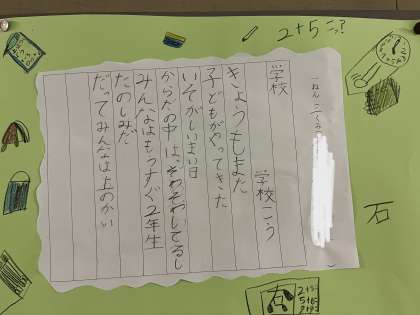 2+5
一ねん二くみ
学校
学校こう
きょうもまた
子どもがやってきた
いそがしいまい日
からだの中は、そわそわしてるし
みんなはもうすぐ2年生
たのしみだ
だってみんなは上のかい
石